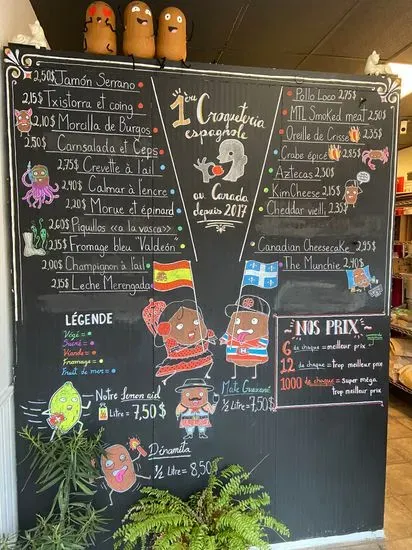 1ère Croqueteria
espagnole
au Canada
depuis 2017
2,50$ Jamón Serrano
2,15$ Txistorra et coing
2,10$ Morcilla de Burgos
2,50$ Carnsalada et Ceps
2,75$ Crevette à l'ail
2,40$ Calmar à l'encre
2,20$ Morue et épinard
2,60$ Piquillos «a la vasca»
2,15$ Fromage bleu "Valdeón"
2,00$ Champignon à l'ail
2,15$ Leche Merengada
Pollo Loco 2,75$
MTL Smoked meat 2,50$
Oreille de Crisse 2,35$
Crabe épicé 2,35$
Aztecas 2,30$
Kim Cheese 2,15$
Cheddar vieilli 2,35$
Canadian Cheesecake 2,95$
The Munchie 2,70$
LÉGENDE
Végé =
Sucré =
Viande =
Fromage =
Fruit de mer =
NOS PRIX
6 de chaque = meilleur prix
12 de chaque = trop meilleur prix
1000 de chaque = super méga
trop meilleur prix
Notre lemon aid
½ Litre = 7,50$
Mate Guaraná
½ Litre = 7,50$
Dinamita
½ Litre = 8,50